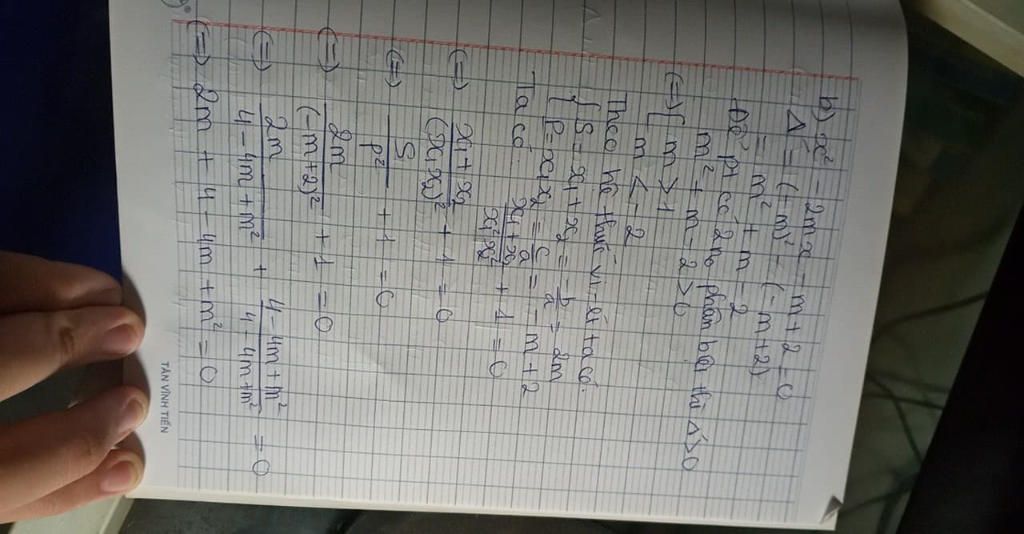 b) x² - 2mx - m + 2 = 0
Δ' = (+m)² - (-m+2)
= m² + m - 2
Để pt có 2 no phân biệt thì Δ' > 0
m² + m - 2 > 0
(=) { m > 1
m < -2
Theo hệ thức vi-ét ta có:
{ S = x₁ + x₂ = -b/a = 2m
P = x₁x₂ = c/a = -m + 2
Ta có: (x₁ + x₂)/(x₁²x₂²) + 1 = 0
(=) (x₁ + x₂)/(x₁x₂)² + 1 = 0
(=) S/P² + 1 = 0
(=) 2m/(-m+2)² + 1 = 0
(=) 2m/(4 - 4m + m²) + (4 - 4m + m²)/(4 - 4m + m²) = 0
(=) 2m + 4 - 4m + m² = 0
TÂN VĨNH TIẾN